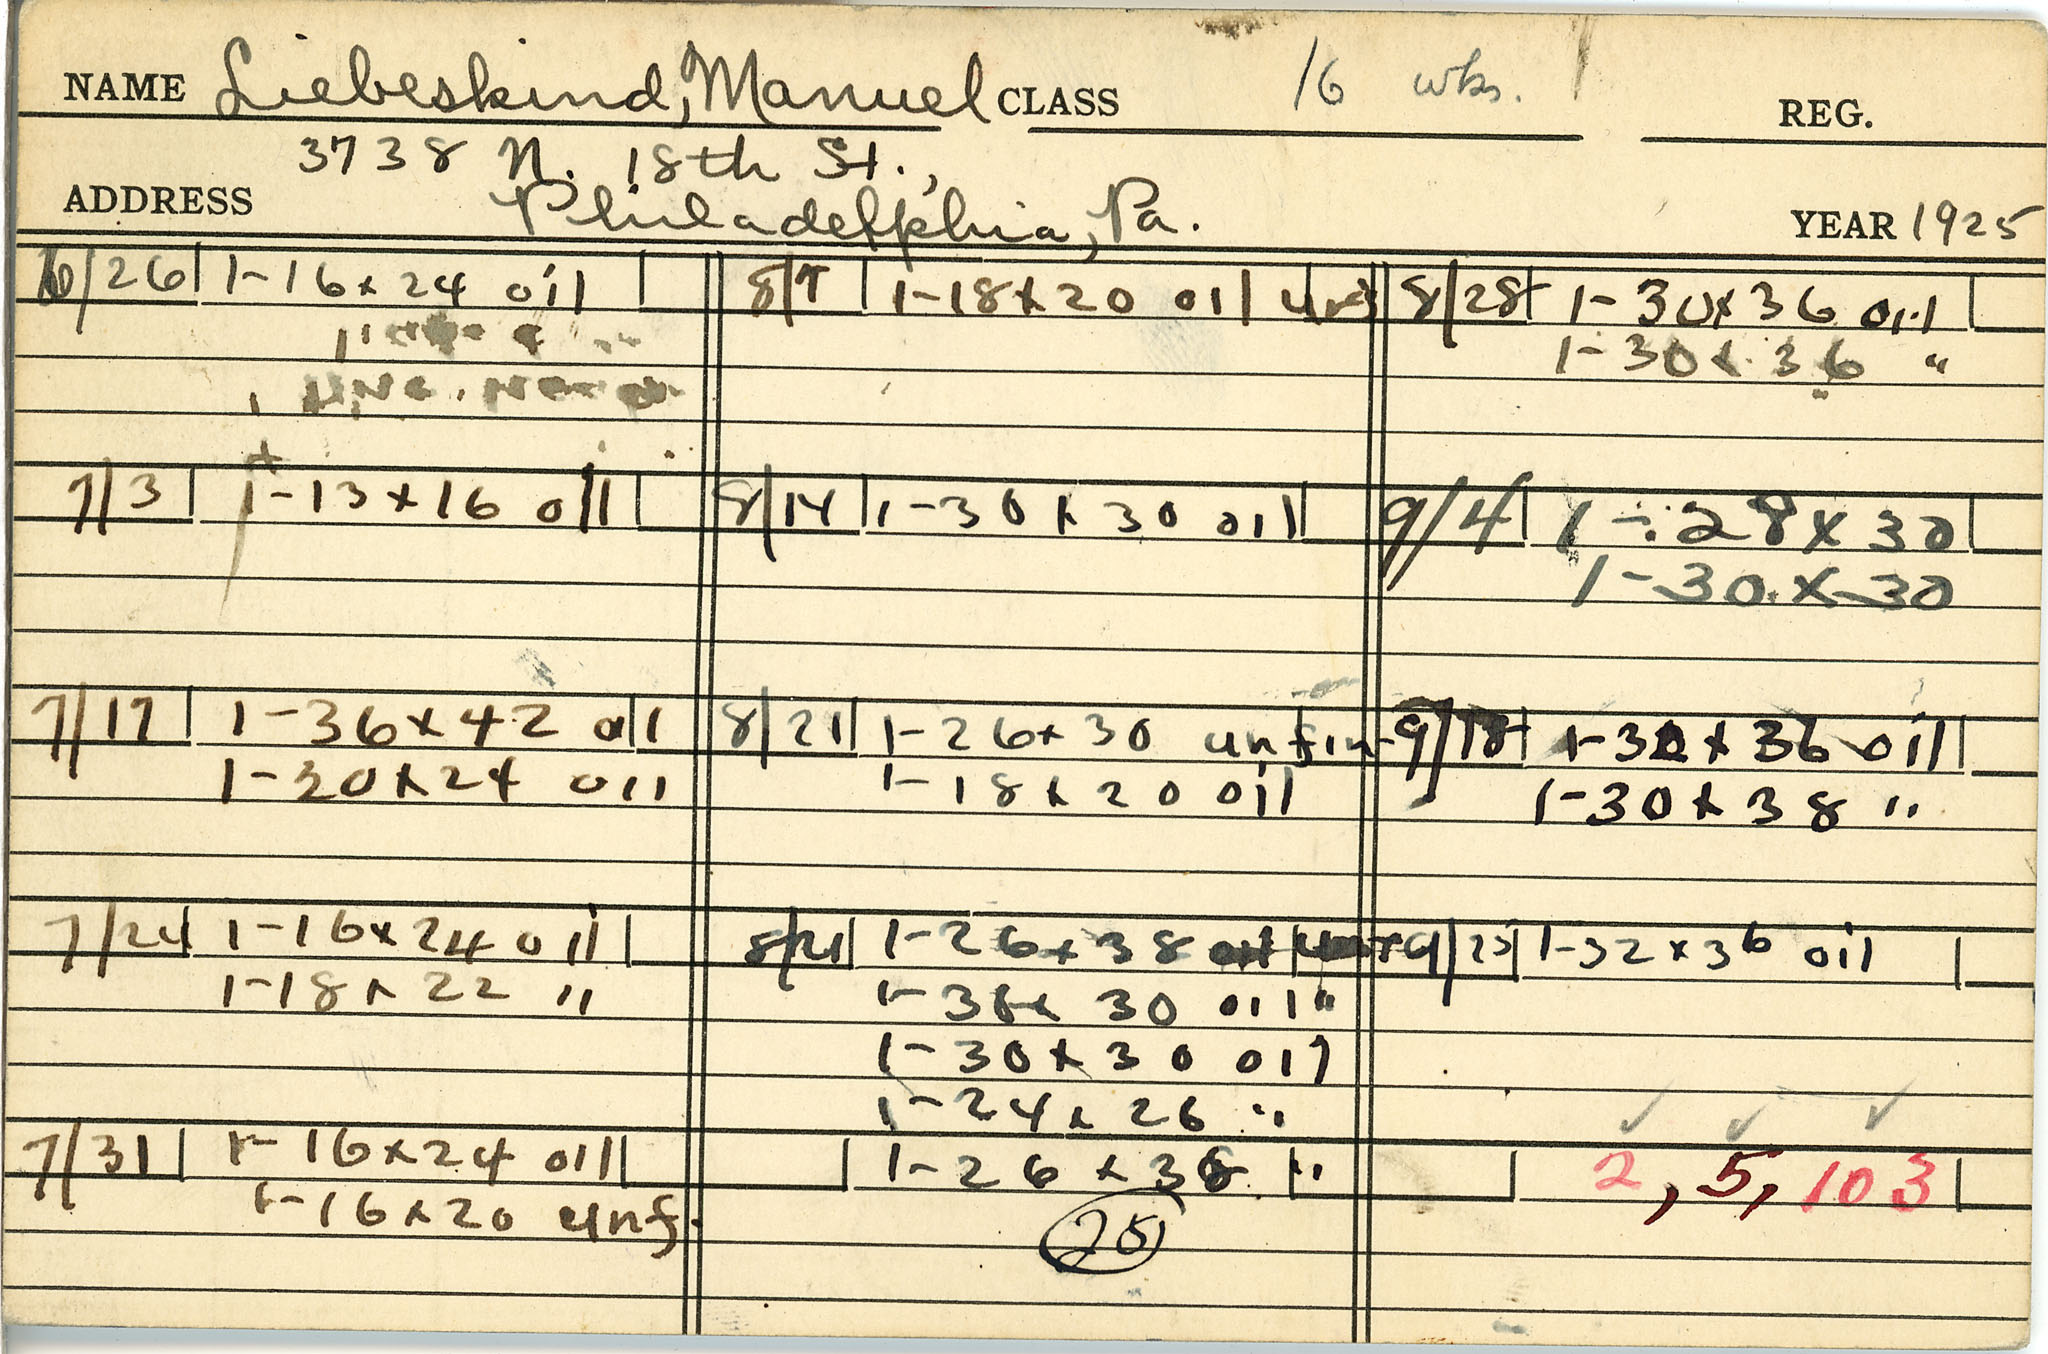 NAME Liebeskind, Manuel CLASS 16 wks. REG.
3738 N. 18th St.,
ADDRESS Philadelphia, Pa. YEAR 1925
6/26 1-16x24 oil
7/3 1-13x16 oil
7/17 1-36x42 oil
1-30x24 oil
7/24 1-16x24 oil
1-18x22 "
7/31 1-16x24 oil
1-16x20 unf.
8/7 1-18x20 oil unf
8/14 1-30x30 oil
8/21 1-26x30 unfin-
1-18x20 oil
8/21 1-26x38
1- x 30 oil "
1-30x30 oil
1-24x26 "
1-26x38 "
25
8/28 1-30x36 oil
1-30x36 "
9/4 1-28x30
1-30x30
9/18 1-32x36 oil
1-30x38 "
9/25 1-32x36 oil
2, 5, 103